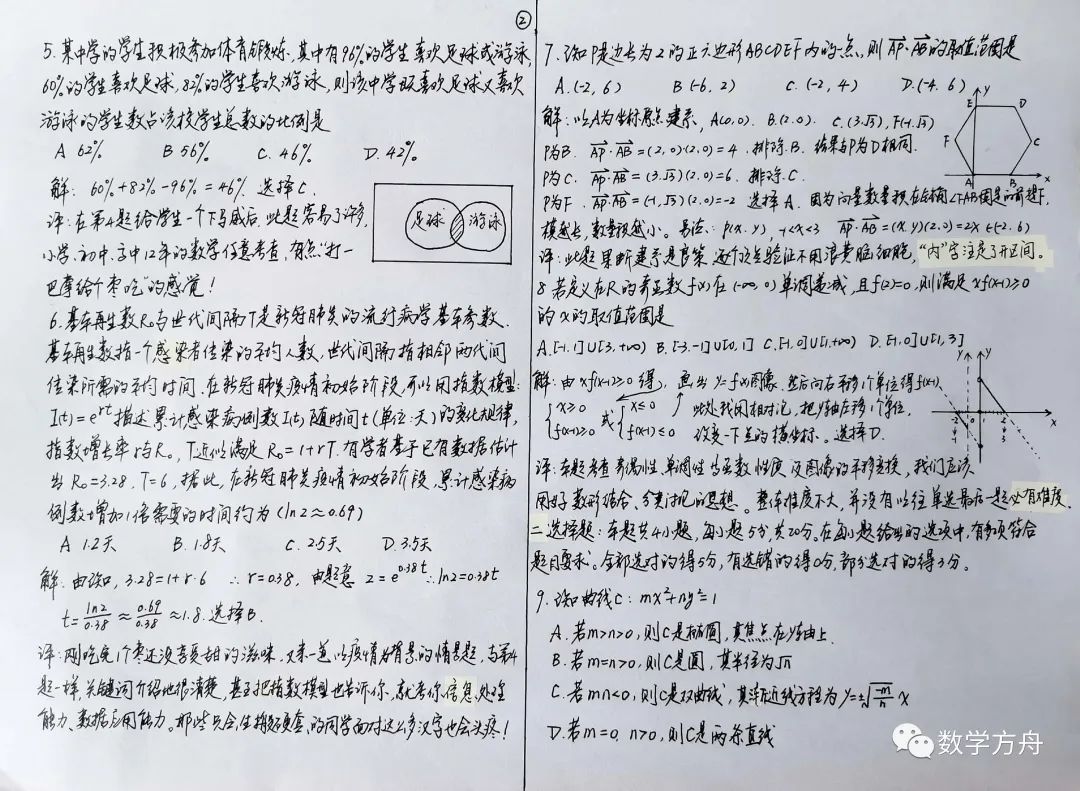 ②
5. 某中学的学生积极参加体育锻炼,其中有96%的学生喜欢足球或游泳,
60%的学生喜欢足球,82%的学生喜欢游泳,则该中学既喜欢足球又喜欢
游泳的学生数占该校学生总数的比例是
A 62% B 56% C. 46% D. 42%
解: 60%+82%-96%=46% 选择C.
评:在第4题给学生一个下马威后,此题容易了许多,
小学、初中、高中12年的数学任意考查,有点"打一
巴掌给个枣吃"的感觉!
足球 游泳
6. 基本再生数R₀与世代间隔T是新冠肺炎的流行病学基本参数.
基本再生数指一个感染者传染的平均人数,世代间隔指相邻两代间
传染所需的平均时间.在新冠肺炎疫情初始阶段,可以用指数模型:
I(t)=e^{rt}描述累计感染病例数I(t)随时间t(单位:天)的变化规律,
指数增长率r与R₀,T近似满足R₀=1+rT.有学者基于已有数据估计
出R₀=3.28,T=6,据此,在新冠肺炎疫情初始阶段,累计感染病
例数增加1倍需要的时间约为(ln2≈0.69)
A 1.2天 B. 1.8天 C. 2.5天 D. 3.5天
解:由已知,3.28=1+r·6 ∴r=0.38, 由题意 2=e^{0.38t} ∴ln2=0.38t
t=ln2/0.38≈0.69/0.38≈1.8.选择B.
评:刚吃完个枣还没享受甜的滋味,又来一道以疫情为背景的情景题,与第4
题一样,关键词介绍地很清楚,甚至把指数模型也告诉你,就考你信息处理
能力、数据应用能力.那些只会生搬硬套的同学面对这么多汉字也会头疼!
7. 已知P是边长为2的正六边形ABCDEF内的一点,则AP·AB的取值范围是
A.(-2,6) B(-6,2) C.(-2,4) D.(-4.6)
解:以A为坐标原点建系,A(0,0). B.(2.0). C.(3.√3),F(-1.√3)
P为B. AP·AB=(2,0)(2,0)=4.排除.B. 结果与P为D相同.
P为C. AP·AB=(3.√3)(2.0)=6.排除.C.
P为F. AP·AB=(-1,√3)(2.0)=-2 选择A. 因为向量数量积在∠FAB固定的前提下,
模越长,数量积越小。易证:P(x.y),-1<x<3 AP·AB=(x.y)(2.0)=2x∈(-2.6)
评:此题果断建系是良策,逐个顶点验证不用浪费脑细胞,"内"字注定了开区间。
y E D F C A B x
8 若定义在R的奇函数f(x)在(-∞,0)单调递减,且f(2)=0,则满足xf(x-1)≥0
的x的取值范围是
A.[-1,1]∪[3,+∞) B.[-3,-1]∪[0,1] C.[-1,0]∪[1,+∞) D.[-1,0]∪[1,3]
解:由xf(x-1)≥0得, 画出y=f(x)图像,然后向右平移1个单位得f(x-1),
{x≥0 f(x-1)≥0 或 {x≤0 f(x-1)≤0
此处我用相对论,把y轴左移1个单位,
改变一下点的横坐标。选择D.
y y x
评:本题考查奇偶性、单调性等函数性质及图像的平移变换,我们应该
用好数形结合、分类讨论的思想。整体难度不大,并没有以往单选最后一题必有难度.
二选择题:本题共4小题,每小题5分,共20分.在每小题给出的选项中,有多项符合
题目要求。全部选对的得5分,有选错的得0分,部分选对的得3分。
9. 已知曲线C:mx²+ny²=1
A.若m>n>0,则C是椭圆,其焦点在y轴上.
B.若m=n>0,则C是圆,其半径为√n
C.若mn<0,则C是双曲线,其渐近线方程为y=±√(-m/n) x
D.若m=0. n>0,则C是两条直线
数学方舟